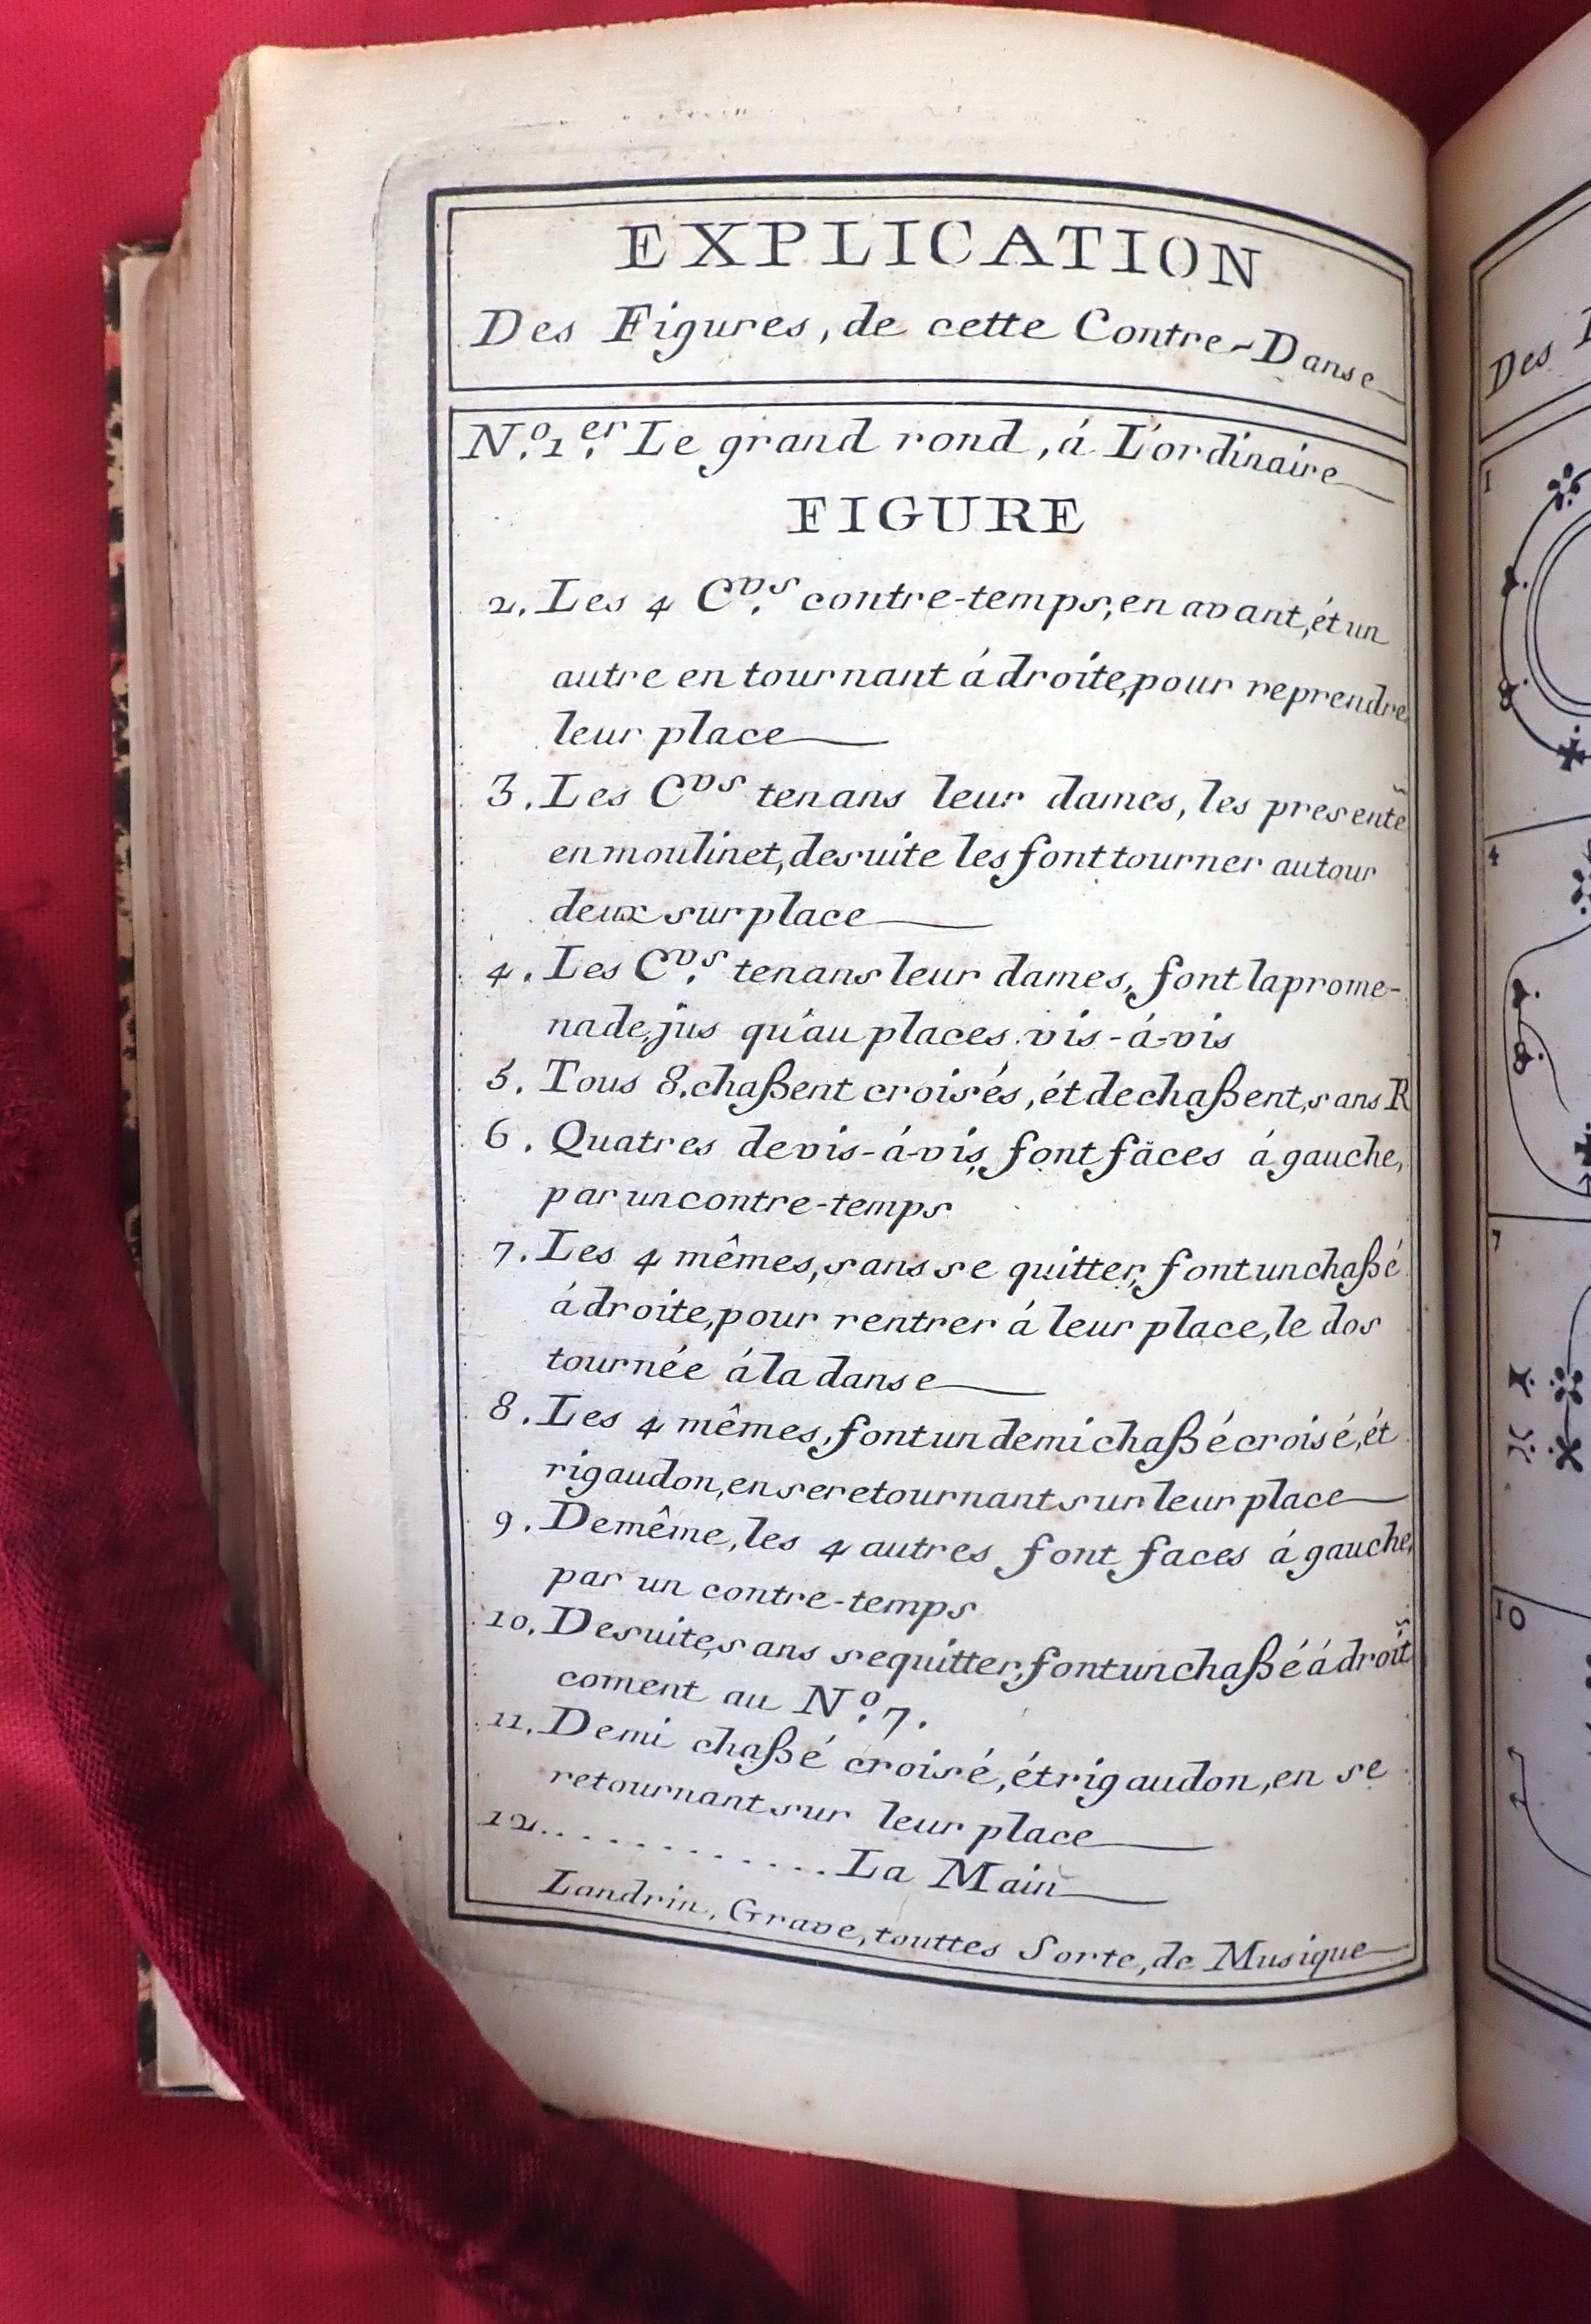 EXPLICATION
Des Figures, de cette Contre-Danse
N.º 1.er Le grand rond, á L'ordinaire
FIGURE
2. Les 4 C.vs contre-temps, en avant, ét un
autre en tournant á droite, pour reprendre
leur place
3. Les Cvs tenans leur dames, les presente
en moulinet, desuite les font tourner autour
deux sur place
4. Les C.vs tenans leur dames, font la prome-
nade, jus qu'au places vis-á-vis
5. Tous 8. chaßent croisés, ét dechaßent, sans R
6. Quatres devis-á-vis, font fäces á gauche,
par un contre-temps
7. Les 4 mêmes, sans se quitter, font un chaßé
á droite, pour rentrer á leur place, le dos
tournée á la danse
8. Les 4 mêmes, font un demi chaßé croisé, ét
rigaudon, en se retournant sur leur place
9. Demême, les 4 autres font faces á gauche,
par un contre-temps
10. Desuite, sans se quitter, font un chaßé á droit
coment au N.º 7.
11. Demi chaßé croisé, ét rigaudon, en se
retournant sur leur place
12. . . . . . . . . . . . La Main
Landrin, Grave, touttes Sorte, de Musique
Des
1
4
7
10